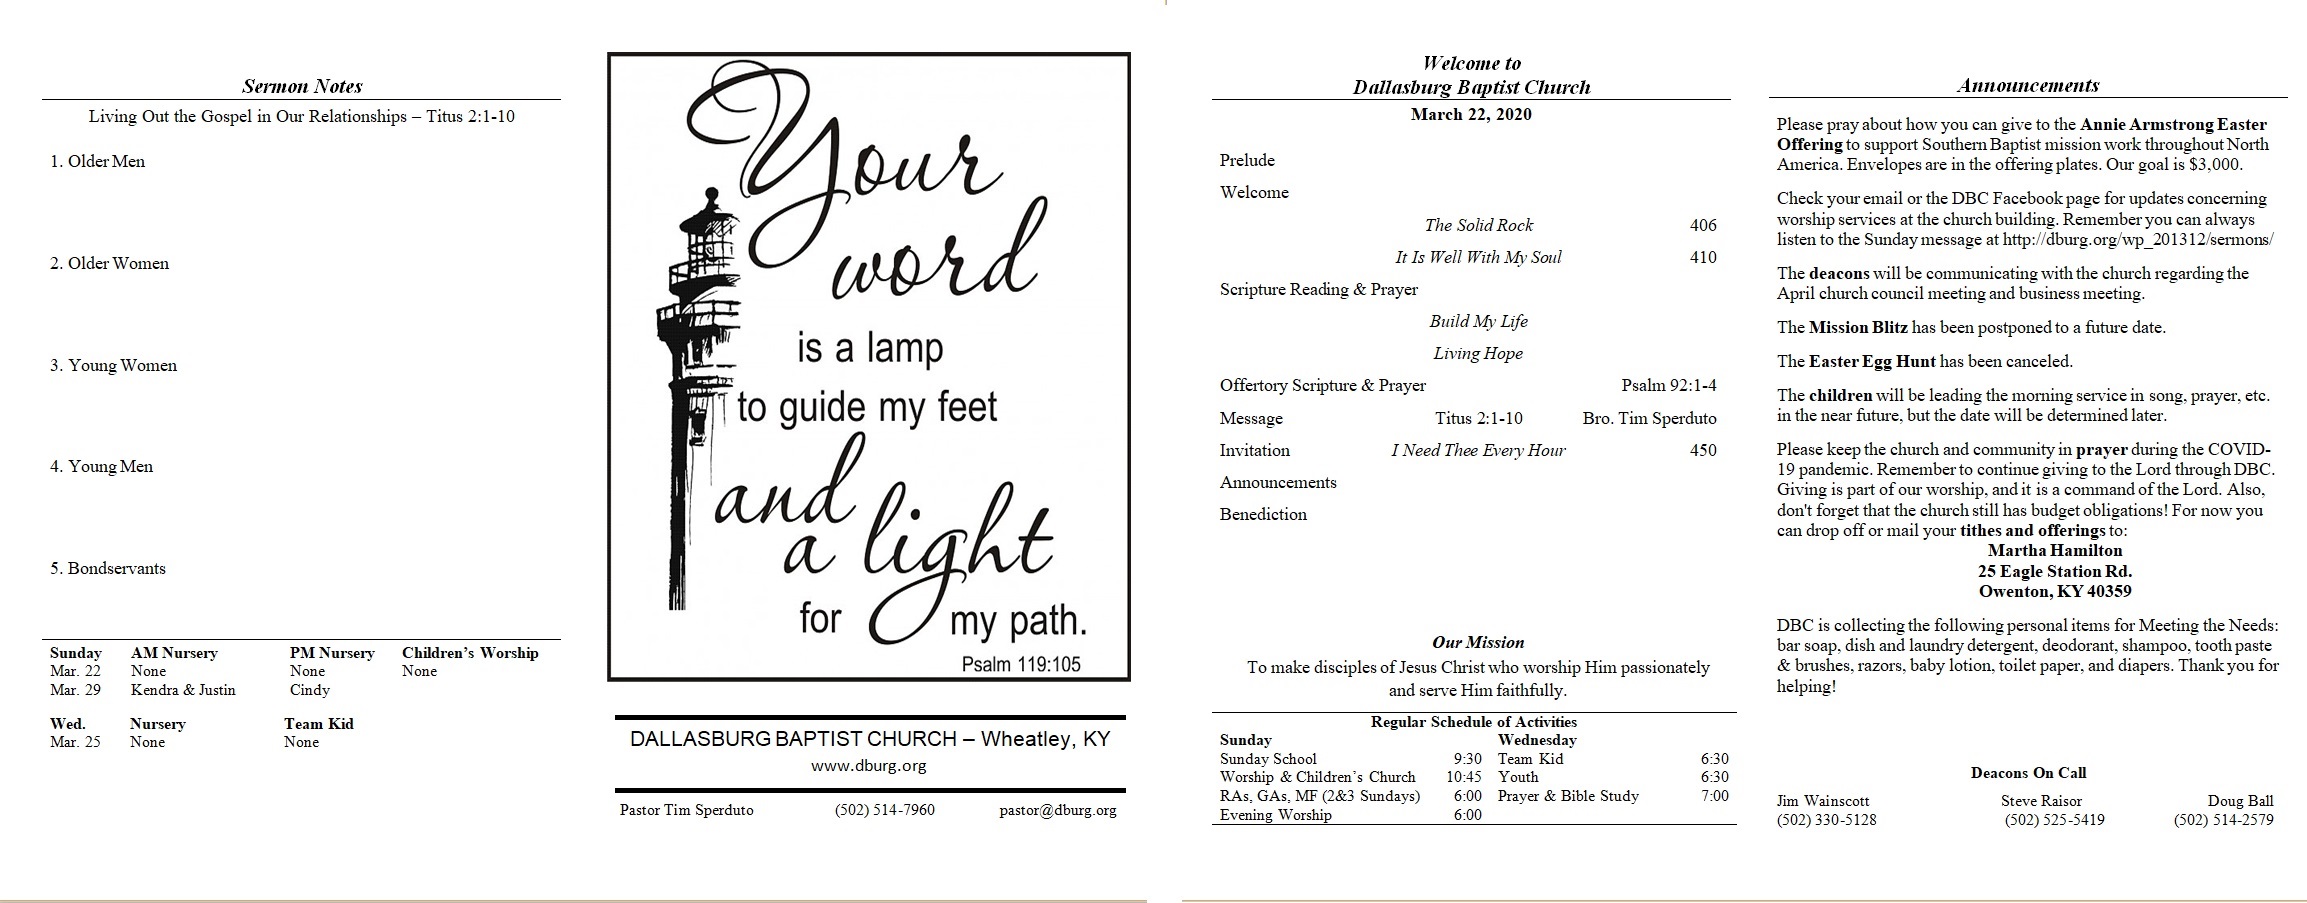 Sermon Notes
Living Out the Gospel in Our Relationships – Titus 2:1-10
1. Older Men
2. Older Women
3. Young Women
4. Young Men
5. Bondservants
Sunday AM Nursery PM Nursery Children's Worship
Mar. 22 None None None
Mar. 29 Kendra & Justin Cindy
Wed. Nursery Team Kid
Mar. 25 None None
Your
word
is a lamp
to guide my feet
and
a light
for my path.
Psalm 119:105
DALLASBURG BAPTIST CHURCH – Wheatley, KY
www.dburg.org
Pastor Tim Sperduto (502) 514-7960 pastor@dburg.org
Welcome to
Dallasburg Baptist Church
March 22, 2020
Prelude
Welcome
The Solid Rock 406
It Is Well With My Soul 410
Scripture Reading & Prayer
Build My Life
Living Hope
Offertory Scripture & Prayer Psalm 92:1-4
Message Titus 2:1-10 Bro. Tim Sperduto
Invitation I Need Thee Every Hour 450
Announcements
Benediction
Our Mission
To make disciples of Jesus Christ who worship Him passionately
and serve Him faithfully.
Regular Schedule of Activities
Sunday Wednesday
Sunday School 9:30 Team Kid 6:30
Worship & Children's Church 10:45 Youth 6:30
RAs, GAs, MF (2&3 Sundays) 6:00 Prayer & Bible Study 7:00
Evening Worship 6:00
Announcements
Please pray about how you can give to the Annie Armstrong Easter
Offering to support Southern Baptist mission work throughout North
America. Envelopes are in the offering plates. Our goal is $3,000.
Check your email or the DBC Facebook page for updates concerning
worship services at the church building. Remember you can always
listen to the Sunday message at http://dburg.org/wp_201312/sermons/
The deacons will be communicating with the church regarding the
April church council meeting and business meeting.
The Mission Blitz has been postponed to a future date.
The Easter Egg Hunt has been canceled.
The children will be leading the morning service in song, prayer, etc.
in the near future, but the date will be determined later.
Please keep the church and community in prayer during the COVID-
19 pandemic. Remember to continue giving to the Lord through DBC.
Giving is part of our worship, and it is a command of the Lord. Also,
don't forget that the church still has budget obligations! For now you
can drop off or mail your tithes and offerings to:
Martha Hamilton
25 Eagle Station Rd.
Owenton, KY 40359
DBC is collecting the following personal items for Meeting the Needs:
bar soap, dish and laundry detergent, deodorant, shampoo, tooth paste
& brushes, razors, baby lotion, toilet paper, and diapers. Thank you for
helping!
Deacons On Call
Jim Wainscott Steve Raisor Doug Ball
(502) 330-5128 (502) 525-5419 (502) 514-2579